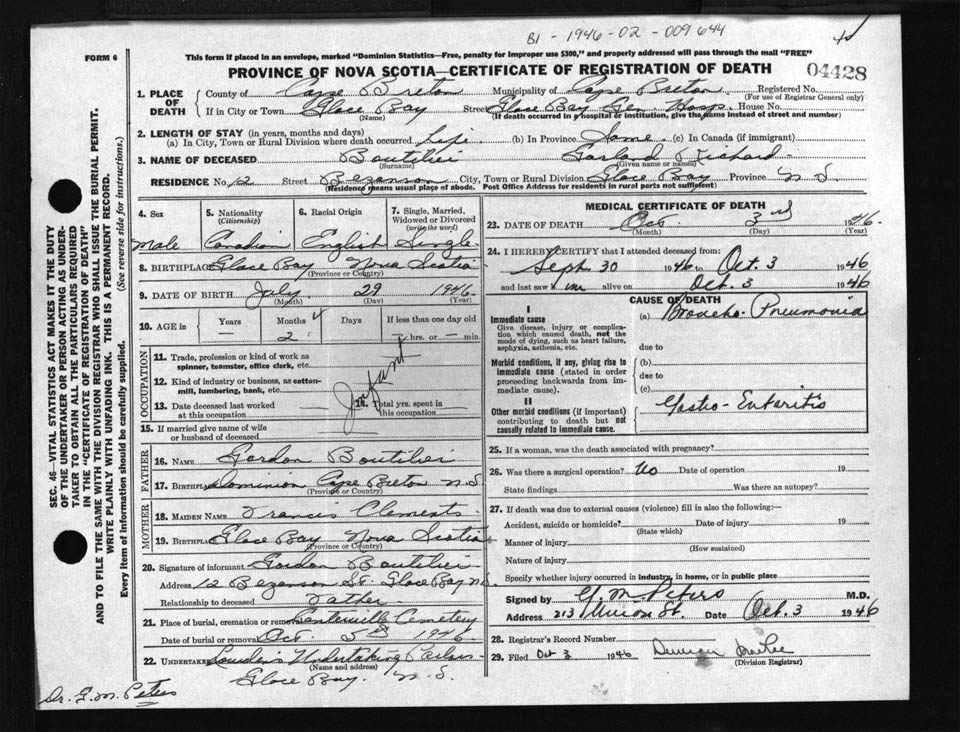 B1 - 1946-02-009644
FORM 6
This form if placed in an envelope, marked "Dominion Statistics—Free, penalty for improper use $300," and properly addressed will pass through the mail "FREE"
PROVINCE OF NOVA SCOTIA—CERTIFICATE OF REGISTRATION OF DEATH
04428
1. PLACE OF DEATH
County of Cape Breton Municipality of Cape Breton Registered No.
(For use of Registrar General only)
If in City or Town Glace Bay Street Glace Bay Gen. Hosp. House No.
(Name) (If death occurred in a hospital or institution, give the name instead of street and number)
2. LENGTH OF STAY (in years, months and days)
(a) In City, Town or Rural Division where death occurred Life (b) In Province Same (c) In Canada (if immigrant)
3. NAME OF DECEASED Boutilier Garland Richard
(Surname) (Given name or names)
RESIDENCE No. 12 Street Bezanson City, Town or Rural Division Glace Bay Province N S.
(Residence means usual place of abode. Post Office Address for residents in rural parts not sufficient)
4. Sex
Male
5. Nationality
(Citizenship)
Canadian
6. Racial Origin
English
7. Single, Married, Widowed or Divorced
(write the word)
Single
8. BIRTHPLACE Glace Bay Nova Scotia
(Province or Country)
9. DATE OF BIRTH July 29 1946
(Month) (Day) (Year)
10. AGE in
Years Months Days If less than one day old
— 2 hrs. or min.
OCCUPATION
11. Trade, profession or kind of work as spinner, teamster, office clerk, etc.
12. Kind of industry or business, as cotton-mill, lumbering, bank, etc.
13. Date deceased last worked at this occupation
14. Total yrs. spent in this occupation
Infant
15. If married give name of wife or husband of deceased
FATHER
16. NAME Gordon Boutilier
17. Birthplace Dominion Cape Breton N.S
(Province or Country)
MOTHER
18. MAIDEN NAME Francis Clements
19. BIRTHPLACE Glace Bay Nova Scotia
(Province or Country)
20. Signature of informant Gordon Boutilier
Address 12 Bezanson St. Glace Bay N.S.
Relationship to deceased Father
21. Place of burial, cremation or removal Centerville Cemetery
Date of burial or removal Oct 5th 1946
22. UNDERTAKER Lowden's Undertaking Parlors
(Name and address)
Glace Bay. N.S.
Dr. G. M. Peters
MEDICAL CERTIFICATE OF DEATH
23. DATE OF DEATH Oct 3rd 1946
(Month) (Day) (Year)
24. I HEREBY CERTIFY that I attended deceased from:
Sept 30 1946 to Oct. 3 1946
and last saw him alive on Oct. 3 1946
CAUSE OF DEATH
I
Immediate cause
Give disease, injury or complication which caused death, not the mode of dying, such as heart failure, asphyxia, asthenia, etc.
(a) Broncho-Pneumonia
due to
Morbid conditions, if any, giving rise to immediate cause (stated in order proceeding backwards from immediate cause).
(b)
due to
(c)
II
Other morbid conditions (if important) contributing to death but not causally related to immediate cause.
Gastro-Enteritis
25. If a woman, was the death associated with pregnancy?
26. Was there a surgical operation? No Date of operation 19
State findings Was there an autopsy?
27. If death was due to external causes (violence) fill in also the following:—
Accident, suicide or homicide? Date of injury 19
(State which)
Manner of injury
(How sustained)
Nature of injury
Specify whether injury occurred in industry, in home, or in public place
Signed by G. M. Peters M.D.
Address 213 Union St. Date Oct. 3 1946
28. Registrar's Record Number
29. Filed Oct 3 1946 Duncan
(Division Registrar)
SEC. 46—VITAL STATISTICS ACT MAKES IT THE DUTY
OF THE UNDERTAKER OR PERSON ACTING AS UNDER-
TAKER TO OBTAIN ALL THE PARTICULARS REQUIRED
IN THE "CERTIFICATE OF REGISTRATION OF DEATH"
AND TO FILE THE SAME WITH THE DIVISION REGISTRAR WHO SHALL ISSUE THE BURIAL PERMIT.
WRITE PLAINLY WITH UNFADING INK. THIS IS A PERMANENT RECORD.
Every item of information should be carefully supplied. (See reverse side for instructions.)